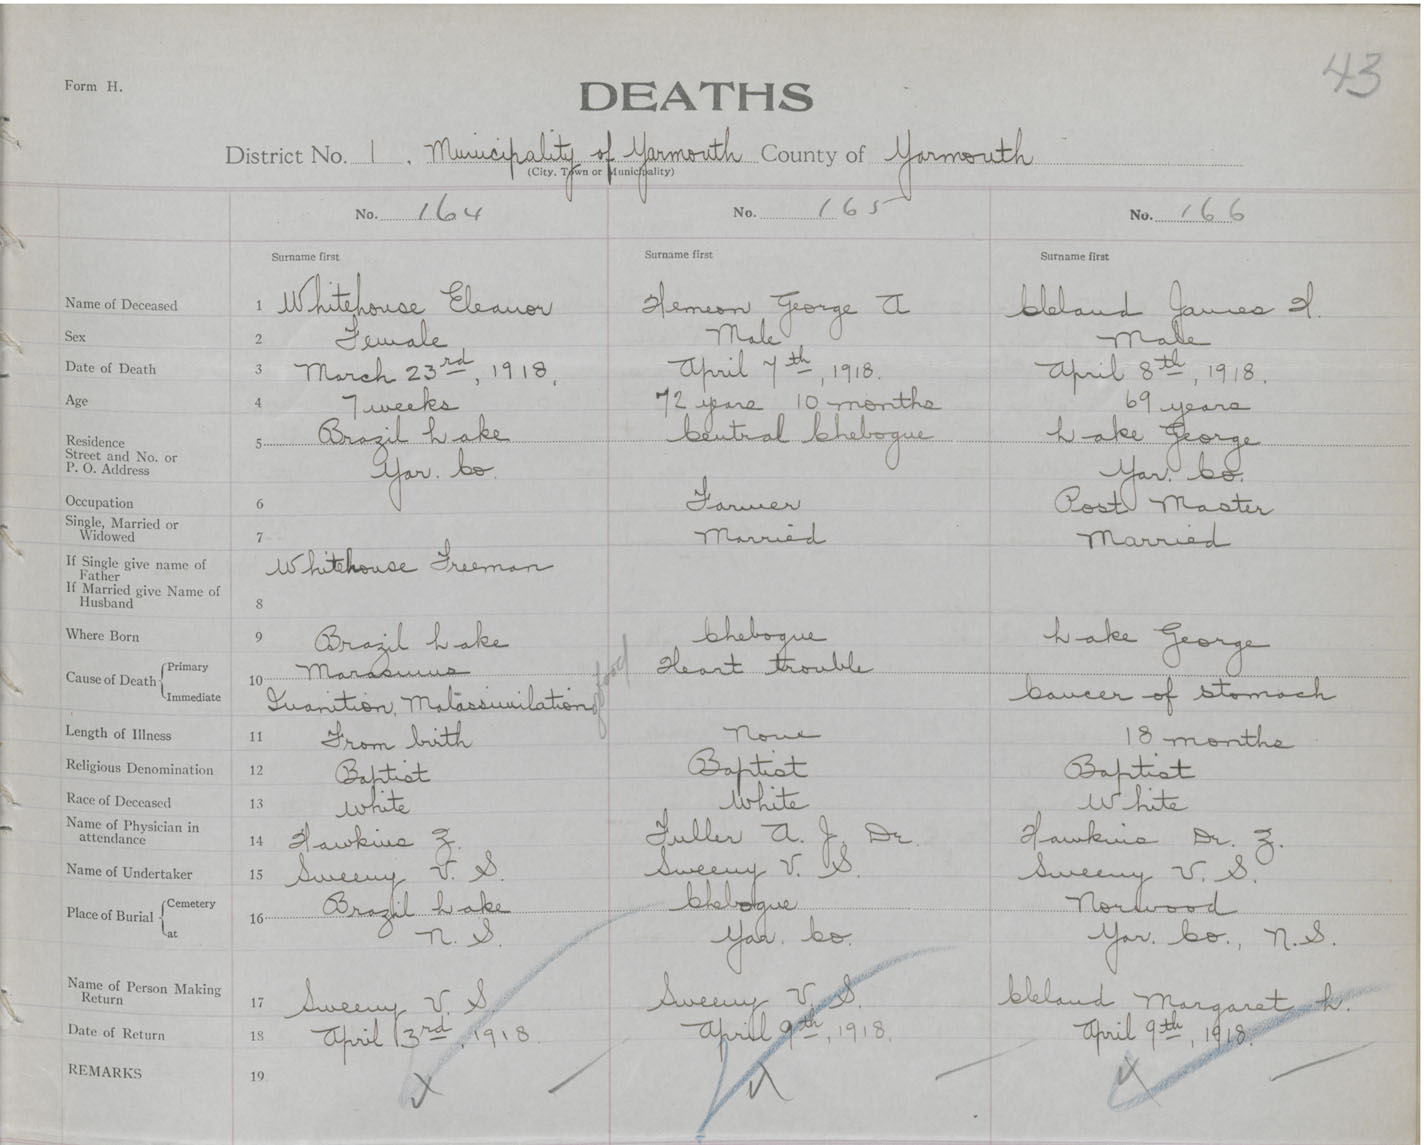 43
Form H.
DEATHS
District No. 1, Municipality of Yarmouth County of Yarmouth
(City, Town or Municipality)
No. 164 No. 165 No. 166
Surname first Surname first Surname first
Name of Deceased 1 Whitehouse Eleanor Hemeon George A Cleland James H.
Sex 2 Female Male Male
Date of Death 3 March 23rd, 1918, April 7th, 1918. April 8th, 1918.
Age 4 7 weeks 72 years 10 months 69 years
Residence 5 Brazil Lake Central Chebogue Lake George
Street and No. or
P. O. Address Yar. Co. Yar. Co.
Occupation 6 Farmer Post Master
Single, Married or
Widowed 7 Married Married
If Single give name of Whitehouse Freeman
Father
If Married give Name of
Husband 8
Where Born 9 Brazil Lake Chebogue Lake George
Cause of Death { Primary 10 Marasmus Heart trouble
Immediate Inanition, Malassimilation of food Cancer of stomach
Length of Illness 11 From birth None 18 months
Religious Denomination 12 Baptist Baptist Baptist
Race of Deceased 13 White White White
Name of Physician in
attendance 14 Hawkins Z. Fuller A. J. Dr. Hawkins Dr. Z.
Name of Undertaker 15 Sweeny V. S. Sweeny V. S. Sweeny V. S.
Place of Burial { Cemetery 16 Brazil Lake Chebogue Norwood
at N. S. Yar. Co. Yar. Co., N.S.
Name of Person Making
Return 17 Sweeny V. S. Sweeny V. S. Cleland Margaret L.
Date of Return 18 April 3rd, 1918 April 9th, 1918. April 9th, 1918.
REMARKS 19